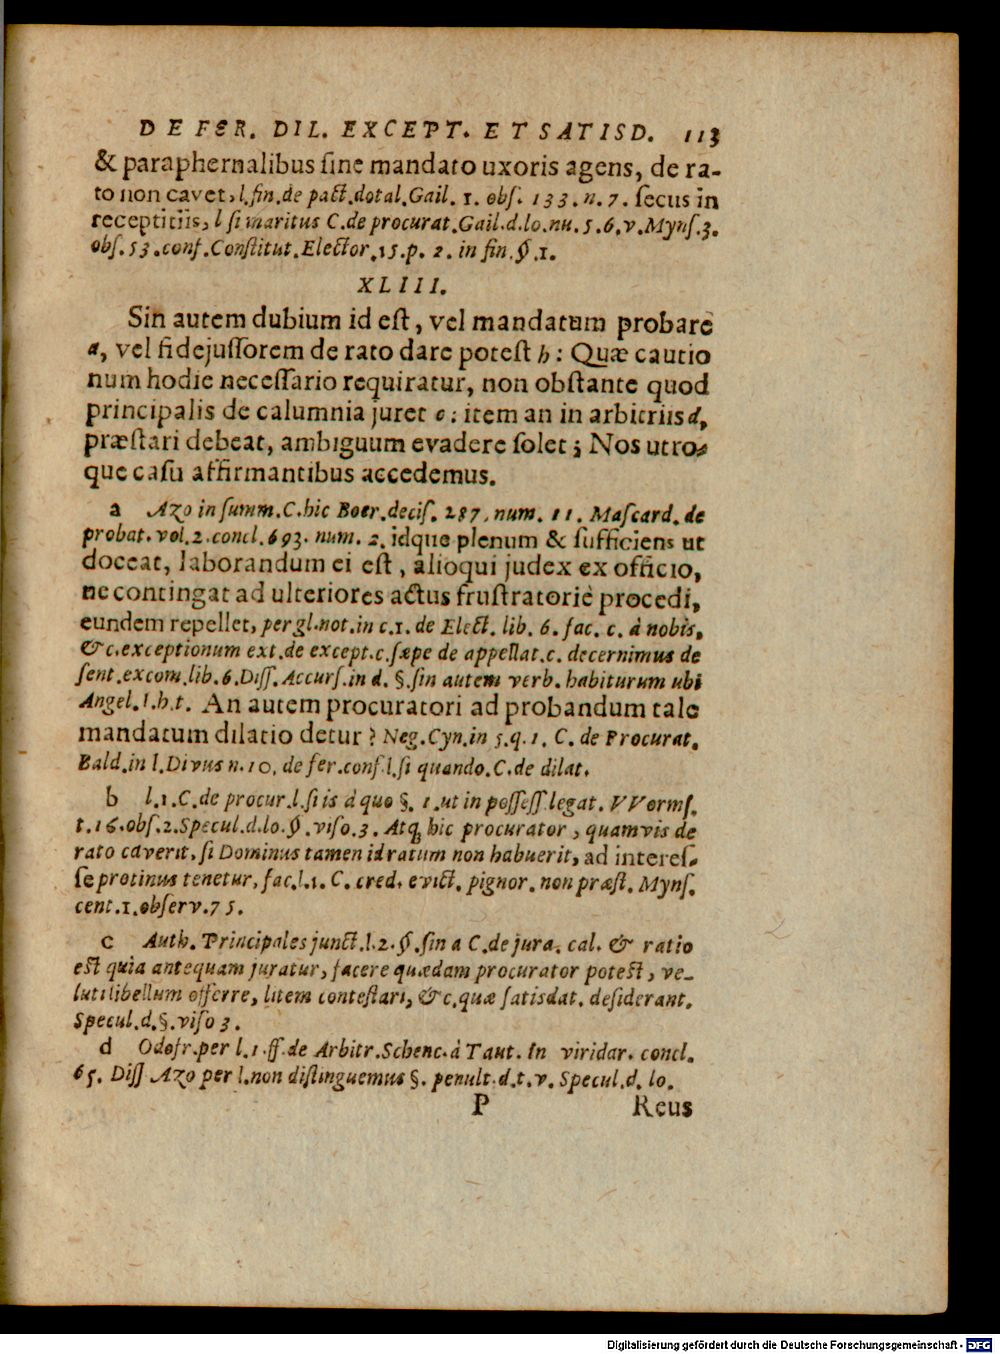 DE FER. DIL. EXCEPT. ET SATISD. 113
& paraphernalibus ſine mandato uxoris agens, de ra-
to non cavet, l. fin. de pact. dotal. Gail. 1. obſ. 133. n. 7. ſecus in
receptitiis, l ſi maritus C. de procurat. Gail. d. lo. nu. 5. 6. v. Mynſ. 3.
obſ. 53. conf. Conſtitut. Elector. 15. p. 2. in fin. §. 1.
XLIII.
Sin autem dubium id eſt, vel mandatum probare
a, vel fidejuſſorem de rato dare poteſt b: Quæ cautio
num hodie neceſſario requiratur, non obſtante quod
principalis de calumnia juret c: item an in arbitriis d,
præſtari debeat, ambiguum evadere ſolet; Nos utro-
que caſu affirmantibus accedemus.
a Azo in ſumm. C. hic Boer. deciſ. 287. num. 11. Maſcard. de
probat. vol. 2. concl. 693. num. 2. idque plenum & ſufficiens ut
doceat, laborandum ei eſt, alioqui judex ex officio,
ne contingat ad ulteriores actus fruſtratoriè procedi,
eundem repellet, per gl. not. in c. 1. de Elect. lib. 6. fac. c. à nobis,
&c. exceptionum ext. de except. c. ſæpe de appellat. c. decernimus de
ſent. excom. lib. 6. Diſſ. Accurſ. in d. §. ſin autem verb. habiturum ubi
Angel. I. h. t. An autem procuratori ad probandum tale
mandatum dilatio detur? Neg. Cyn. in 5. q. 1. C. de Procurat.
Bald. in l. Divus n. 10. de fer. conf. l. ſi quando. C. de dilat.
b l. 1. C. de procur. l. ſi is à quo §. 1. ut in poſſeſſ. legat. VVormſ.
t. 16. obſ. 2. Specul. d. lo. §. viſo. 3. Atq; hic procurator, quamvis de
rato caverit, ſi Dominus tamen id ratum non habuerit, ad intereſ-
ſe protinus tenetur, fac. l. 1. C. cred. evict. pignor. non præſt. Mynſ.
cent. 1. obſerv. 75.
c Auth. Principales junct. l. 2. §. ſin a C. de jura. cal. & ratio
eſt quia antequam juratur, facere quædam procurator poteſt, ve-
luti libellum offerre, litem conteſtari, &c. quæ ſatisdat. deſiderant.
Specul. d. §. viſo 3.
d Odofr. per l. 1. ff. de Arbitr. Schenc. à Taut. In viridar. concl.
65. Diſſ Azo per l. non diſtinguemus §. penult. d. t. v. Specul. d. lo.
P Reus
Digitalisierung gefördert durch die Deutsche Forschungsgemeinschaft - DFG